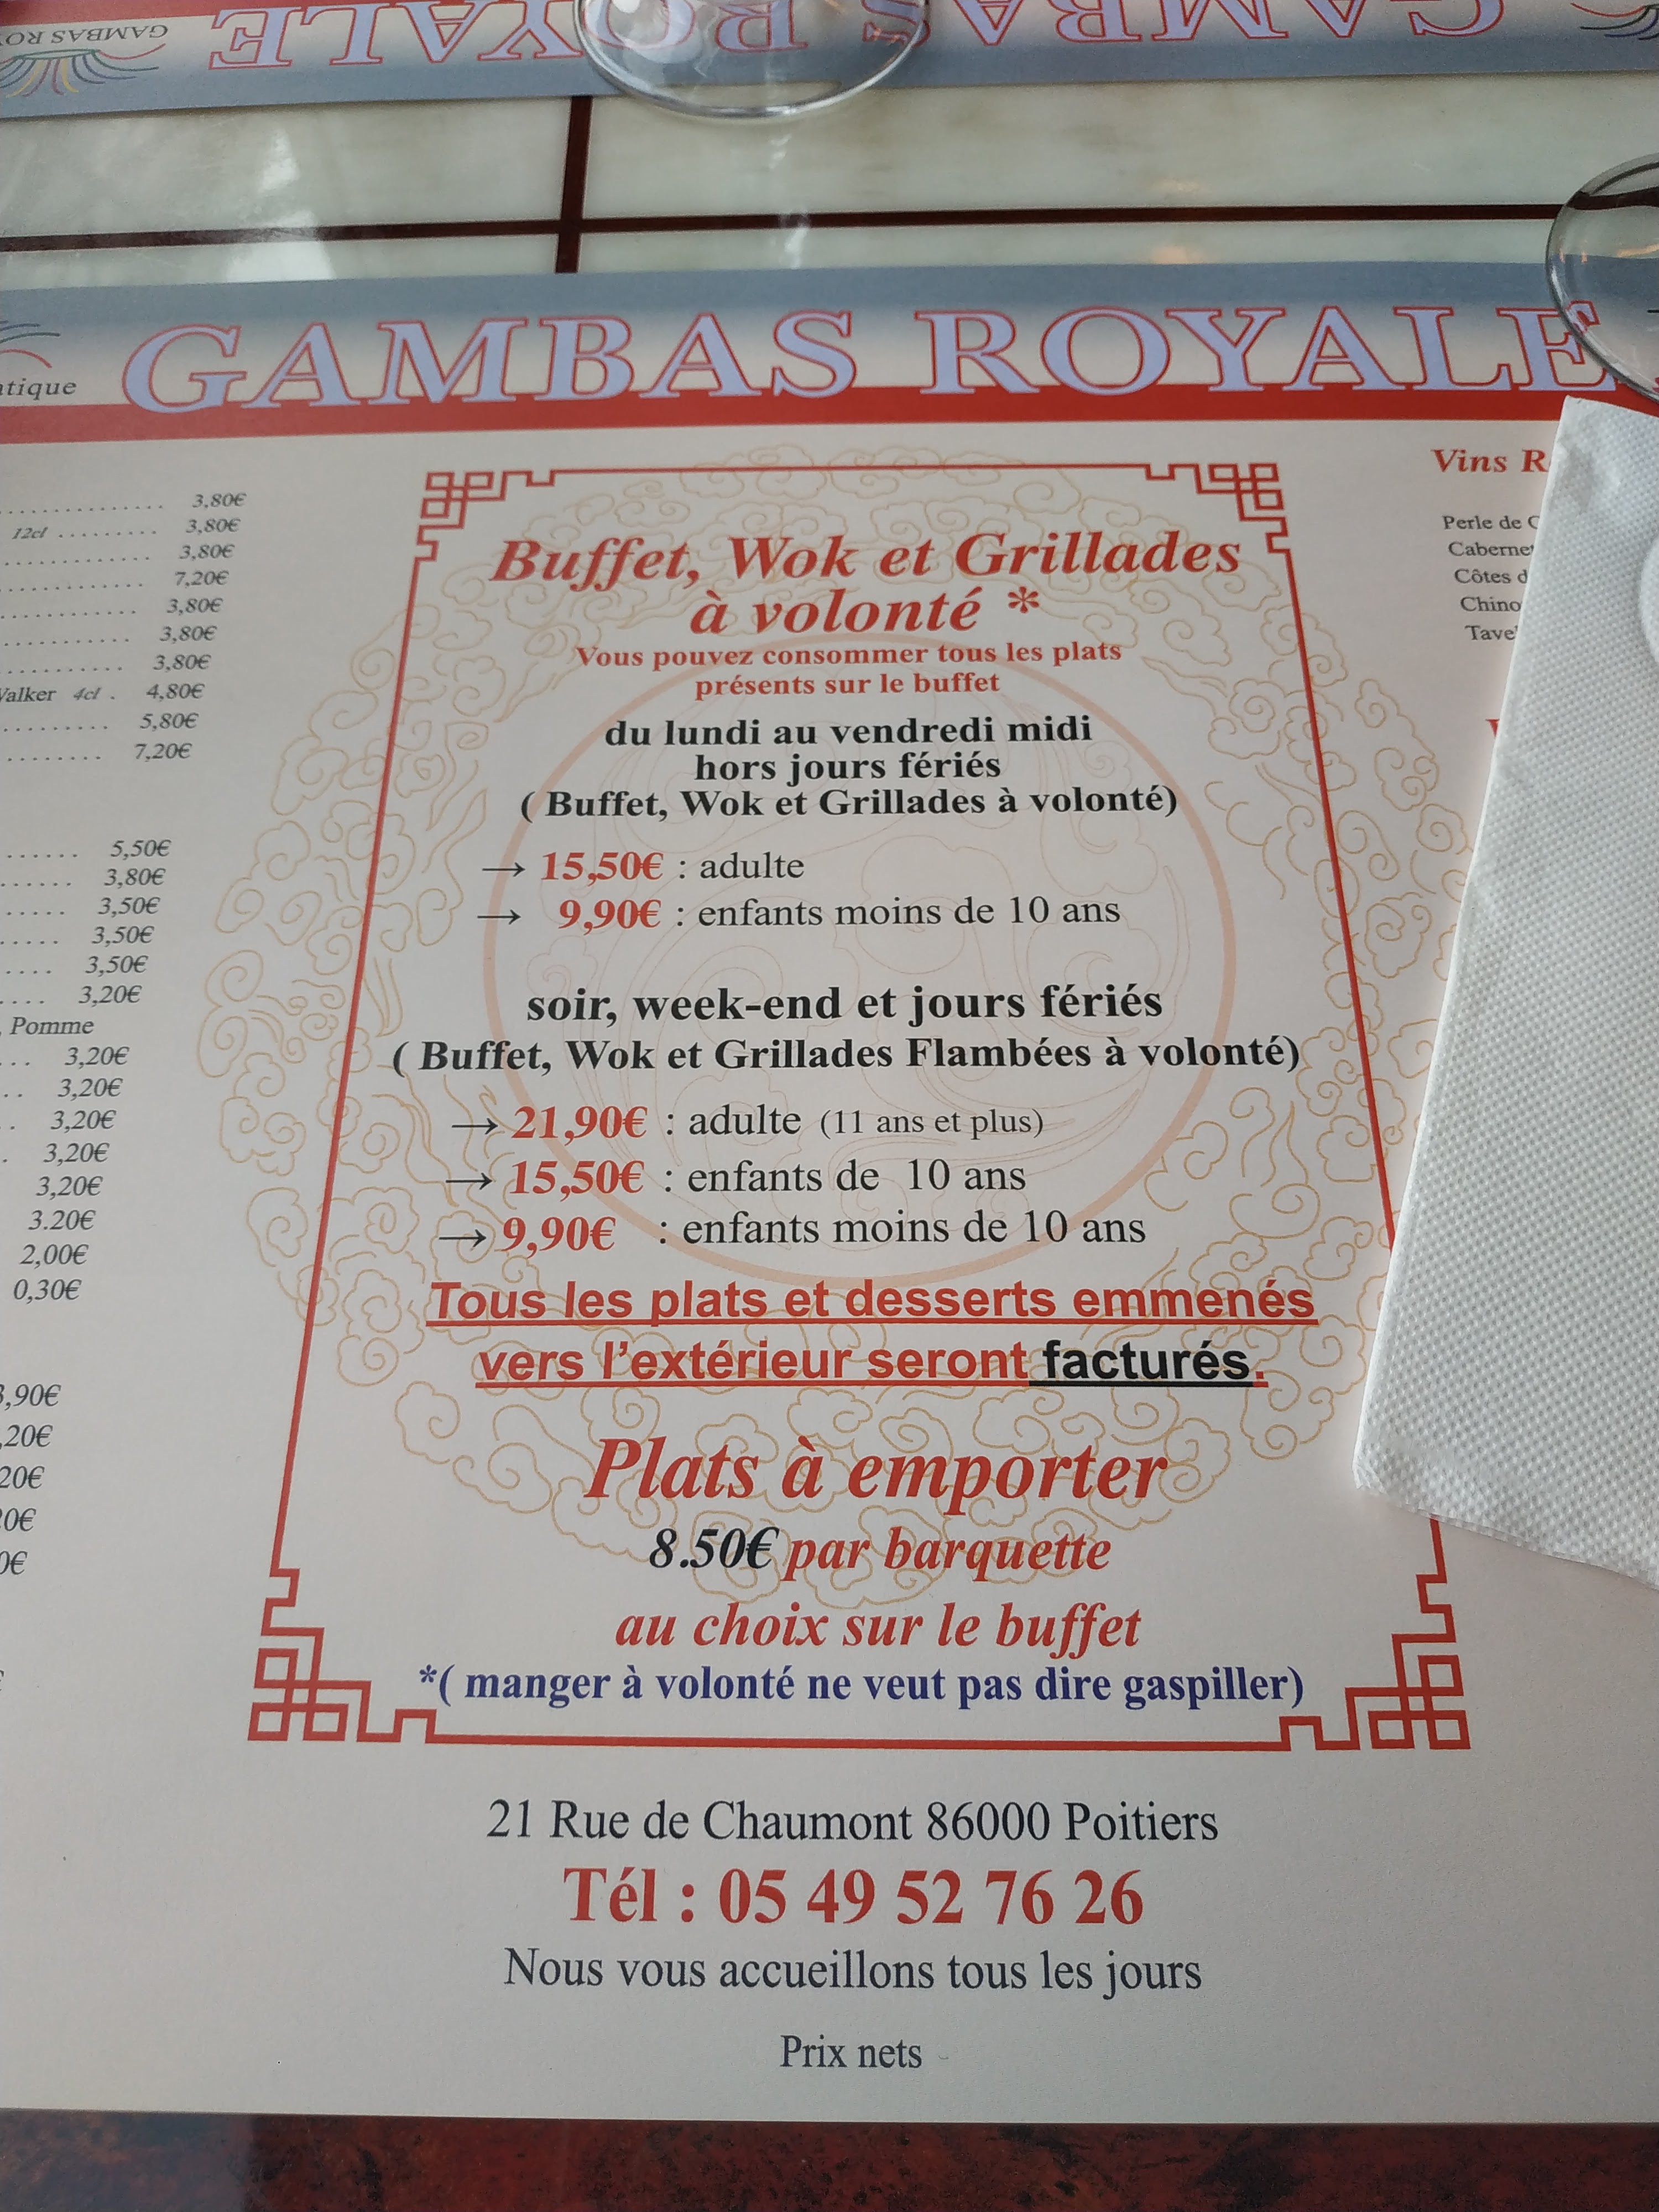 GAMBAS ROYALE
GAMBAS ROYALE
3,80€
12cl 3,80€
3,80€
7,20€
3,80€
3,80€
3,80€
4cl . 4,80€
5,80€
7,20€
5,50€
3,80€
3,50€
3,50€
3,50€
3,20€
Pomme
3,20€
3,20€
3,20€
3,20€
3,20€
3.20€
2,00€
0,30€
Buffet, Wok et Grillades
à volonté *
Vous pouvez consommer tous les plats
présents sur le buffet
du lundi au vendredi midi
hors jours fériés
( Buffet, Wok et Grillades à volonté)
→ 15,50€ : adulte
→ 9,90€ : enfants moins de 10 ans
soir, week-end et jours fériés
( Buffet, Wok et Grillades Flambées à volonté)
→ 21,90€ : adulte (11 ans et plus)
→ 15,50€ : enfants de 10 ans
→ 9,90€ : enfants moins de 10 ans
Tous les plats et desserts emmenés
vers l'extérieur seront facturés.
Plats à emporter
8.50€ par barquette
au choix sur le buffet
*( manger à volonté ne veut pas dire gaspiller)
Vins
Perle de
Côtes
21 Rue de Chaumont 86000 Poitiers
Tél : 05 49 52 76 26
Nous vous accueillons tous les jours
Prix nets